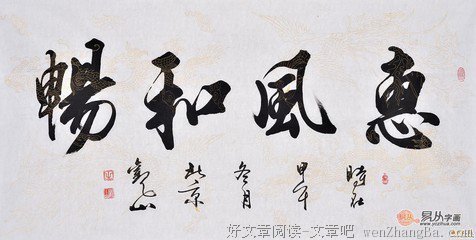 惠風和暢
時在
甲午
冬月
北京
易从字画
好文章阅读-文章吧 wenZhangBa.com